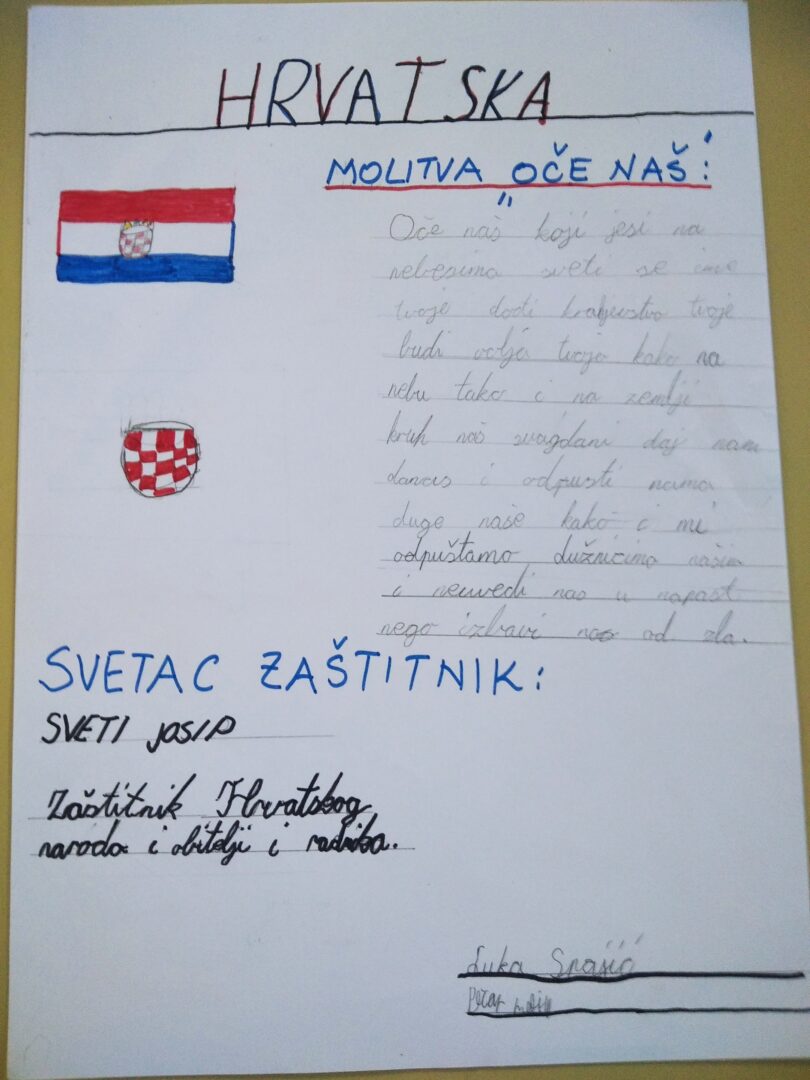 HRVATSKA
MOLITVA "OČE NAŠ":
Oče naš koji jesi na
nebesima sveti se ime
tvoje dođi kraljevstvo tvoje
budi volja tvoja kako na
nebu tako i na zemlji
kruh naš svagdani daj nam
danas i odpusti nama
duge naše kako i mi
odpuštamo dužnicima našim
i neuvedi nas u napast
nego izbavi nas od zla.
SVETAC ZAŠTITNIK:
SVETI JOSIP
Zaštitnik Hrvatskog
naroda i obitelji i radnika.
Luka